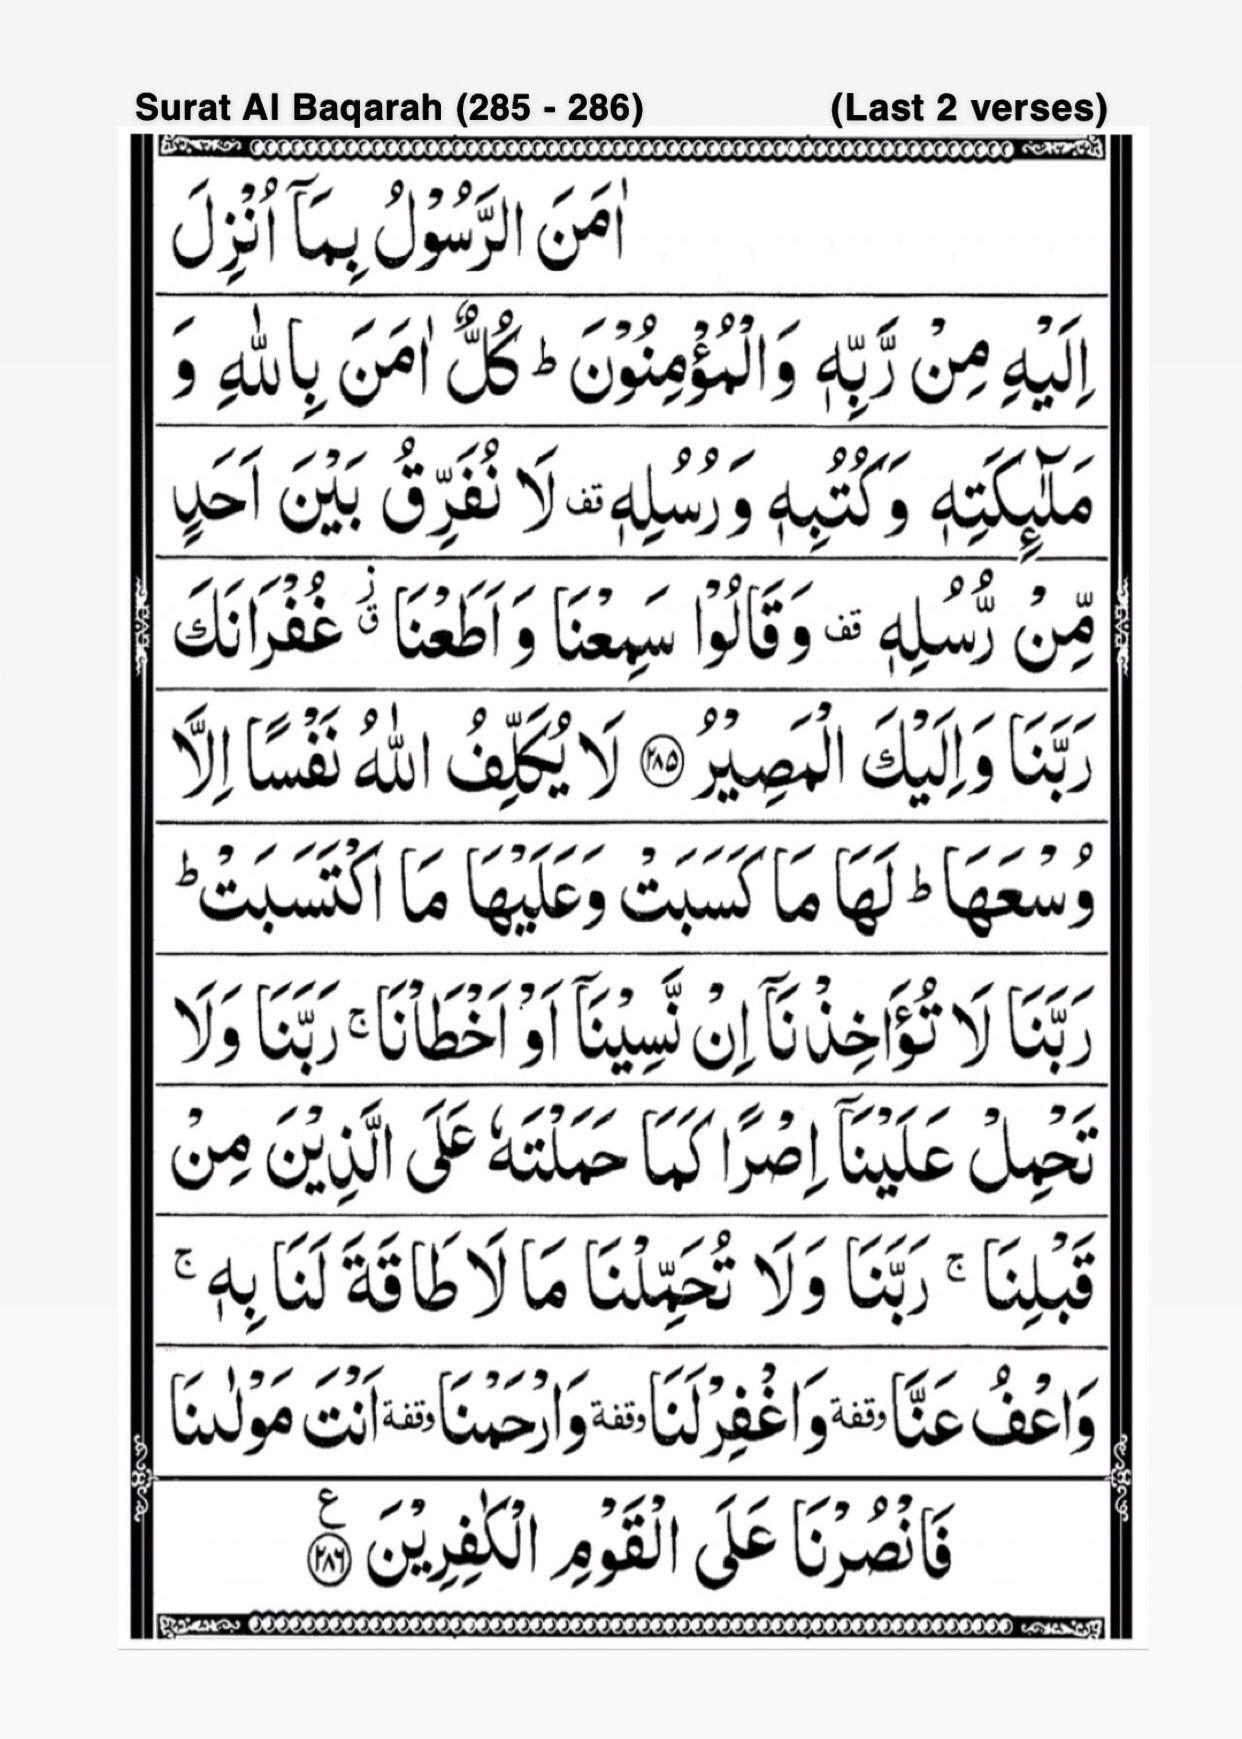 Surat Al Baqarah (285 - 286) (Last 2 verses)
اٰمَنَ الرَّسُوْلُ بِمَآ اُنْزِلَ
اِلَيْهِ مِنْ رَّبِّهٖ وَالْمُؤْمِنُوْنَ ؕ كُلٌّ اٰمَنَ بِاللّٰهِ وَ
مَلٰٓئِكَتِهٖ وَكُتُبِهٖ وَرُسُلِهٖ قف لَا نُفَرِّقُ بَيْنَ اَحَدٍ
مِّنْ رُّسُلِهٖ قف وَقَالُوْا سَمِعْنَا وَاَطَعْنَا ق ز غُفْرَانَكَ
رَبَّنَا وَاِلَيْكَ الْمَصِيْرُ ۝۲۸۵ لَا يُكَلِّفُ اللّٰهُ نَفْسًا اِلَّا
وُسْعَهَا ؕ لَهَا مَا كَسَبَتْ وَعَلَيْهَا مَا اكْتَسَبَتْ ؕ
رَبَّنَا لَا تُؤَاخِذْنَآ اِنْ نَّسِيْنَآ اَوْ اَخْطَاْنَا ۚ رَبَّنَا وَلَا
تَحْمِلْ عَلَيْنَآ اِصْرًا كَمَا حَمَلْتَهٗ عَلَى الَّذِيْنَ مِنْ
قَبْلِنَا ۚ رَبَّنَا وَلَا تُحَمِّلْنَا مَا لَا طَاقَةَ لَنَا بِهٖ ۚ
وَاعْفُ عَنَّا وقفة وَاغْفِرْلَنَا وقفة وَارْحَمْنَا وقفة اَنْتَ مَوْلٰىنَا
فَانْصُرْنَا عَلَى الْقَوْمِ الْكٰفِرِيْنَ ۝۲۸۶ ع